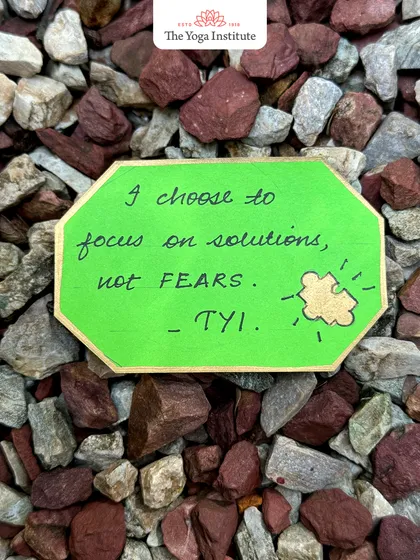 ESTD 1918
The Yoga Institute
I choose to
focus on solutions,
not FEARS.
- TYI.